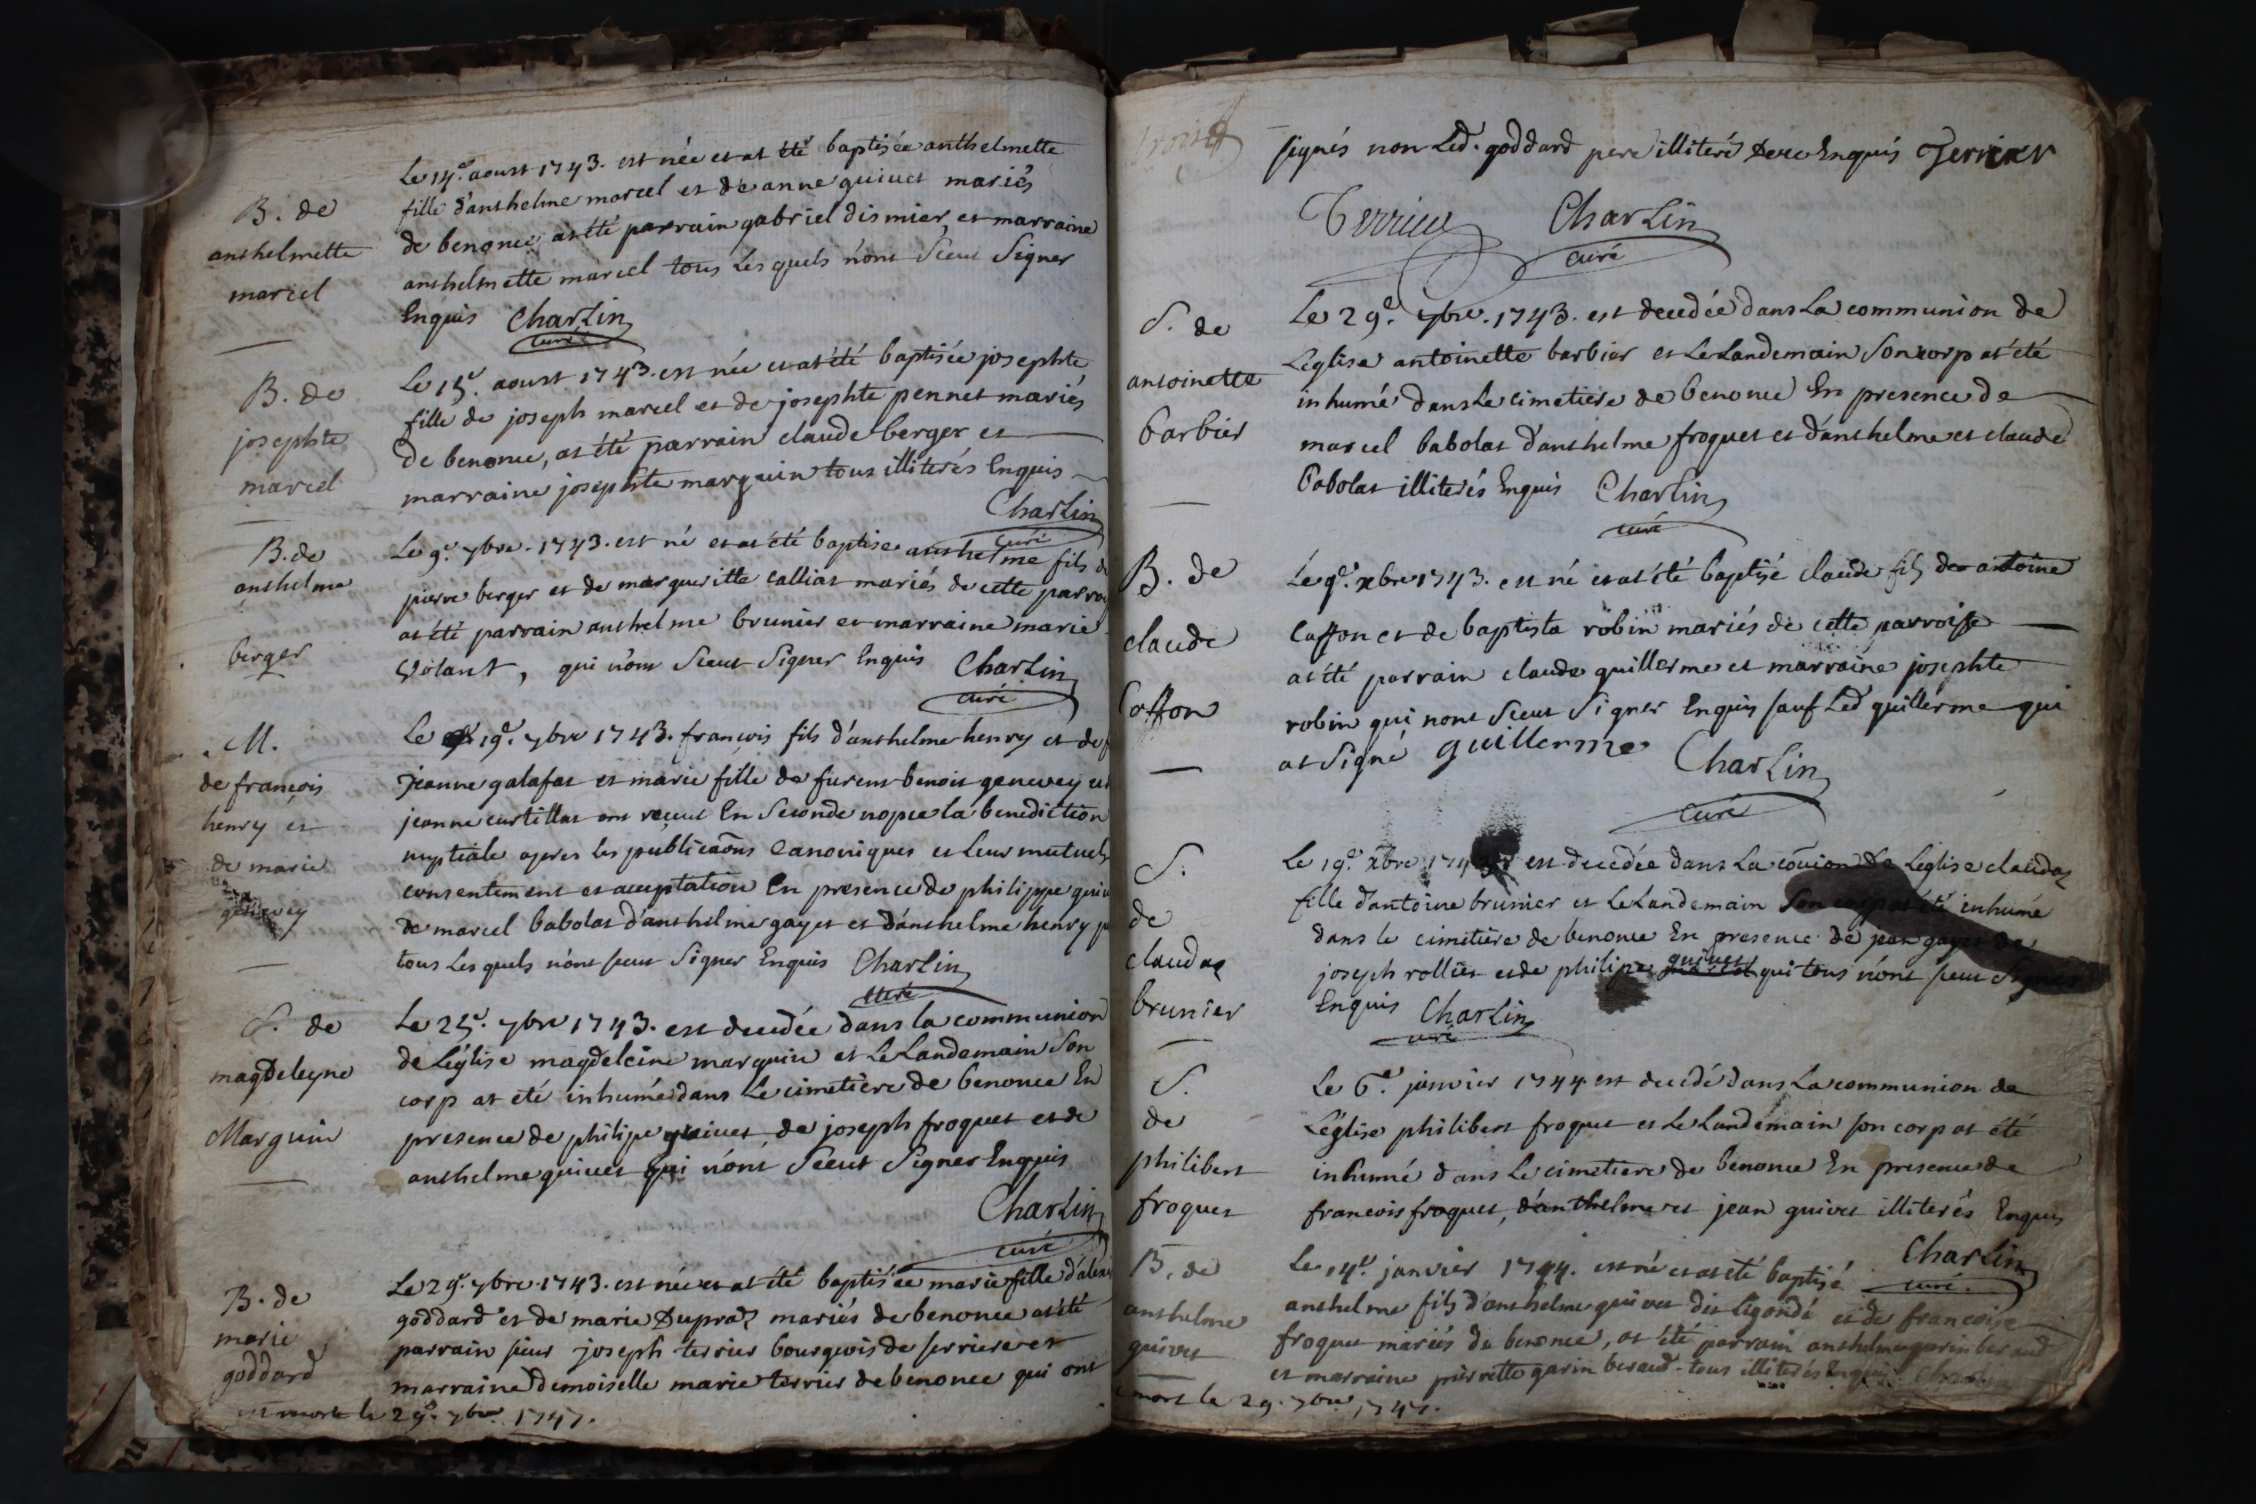 B. de
anthelmette
marcel
Le 14e. aoust 1743. est née et at été baptisée anthelmette
fille d'anthelme marcel et de anne quivet mariés
de benonce at été parrain gabriel dismier, et marraine
anthelmette marcel tous Lesquels n'ont Sceut Signer
Enquis Charlin
curé
B. de
josephte
marcel
Le 15e. aoust 1743. est née et at été baptisée josephte
fille de joseph marcel et de josephte pennet mariés
de benonce, at été parrain claude berger et
marraine josephte marguin tous illiterés Enquis
Charlin
curé
B. de
anthelme
berger
Le 9e. 7bre. 1743. est né et at été baptise anthelme fils
pierre berger et de marguerite calliat mariés de cette
at été parrain anthelme brunier et marraine marie
Volant, qui n'ont Sceut Signer Enquis Charlin
curé
M.
de françois
henry et
de marie
genevey
Le 19e. 7bre 1743. françois fils d'anthelme henry et de
jeanne galafat et marie fille de furent benoit genevey et
jeanne curtillat ont reçeut En Seconde nopce la benediction
nuptiale apres les publicaõns Canoniques et Leur mutuel
consentement et acceptation En presence de philippe
de marcel babolat d'anthelme gayet et d'anthelme henry
tous Lesquels n'ont sceut Signer Enquis Charlin
curé
S. de
magdeleyne
Marguin
Le 25e. 7bre 1743. est decedée dans la communion
de Léglise magdeleine marguin et Le Landemain Son
corp at eté inhumé dans Le cimetiere de benonce En
presence de philipe quivet, de joseph froquet et de
anthelme quivet qui n'ont Sceut Signer Enquis
Charlin
curé
B. de
marie
goddard
Le 29e. 7bre. 1743. est née et at été baptisée marie fille
goddard et de marie Dupraz mariés de benonce at été
parrain sieur joseph terrier bourgeois de serriere et
marraine Demoiselle marie terrier de benonce qui ont
est morte le 29e. 7bre. 1747.
signés non Led. goddard pere illiteré De ce Enquis Terrier
Terrier Charlin
curé
S. de
antoinette
barbier
Le 29e. 7bre. 1743. est decedée dans La communion de
Léglise antoinette barbier et Le Landemain Son corp at été
inhumé dans Le cimetiere de benonce En presence de
marcel babolat d'anthelme froquet et d'anthelme et claude
babolat illiterés Enquis Charlin
curé
B. de
claude
Coffon
Le 9e. xbre 1743. est né et at été baptisé claude fils de antoine
Coffon et de baptista robin mariés de cette parroisse
at été parrain claude guillerme et marraine josephte
robin qui nont Sceut Signer Enquis sauf Led guillerme qui
at Signé guillerme Charlin
curé
S.
de
claudaz
brunier
Le 19e. xbre est decedée dans La coũion de Léglise claudaz
fille d'antoine brunier et Le Landemain Son corp at été inhumé
dans le cimetiere de benonce En presence de jean gayet de
joseph rollier et de philipe quivet qui tous n'ont sceut Signer
Enquis Charlin
curé
S.
de
philibert
froquet
Le 6e. janvier 1744 est decedé dans La communion de
Léglise philibert froquet et Le Landemain son corp at été
inhumé dans Le cimetiere de benonce En presence de
francois froquet, d'anthelme et jean quivet illiterés Enquis
Charlin
curé.
B. de
anthelme
quivet
Le 14e. janvier 1744. est né et at été baptisé
anthelme fils d'anthelme quivet dit Ligondé et de francoise
froquet mariés de benonce, at été parrain anthelme garin beraud
et marraine pierrette garin beraud tous illiterés Enquis Charlin
mort le 29. 7bre. 1747.